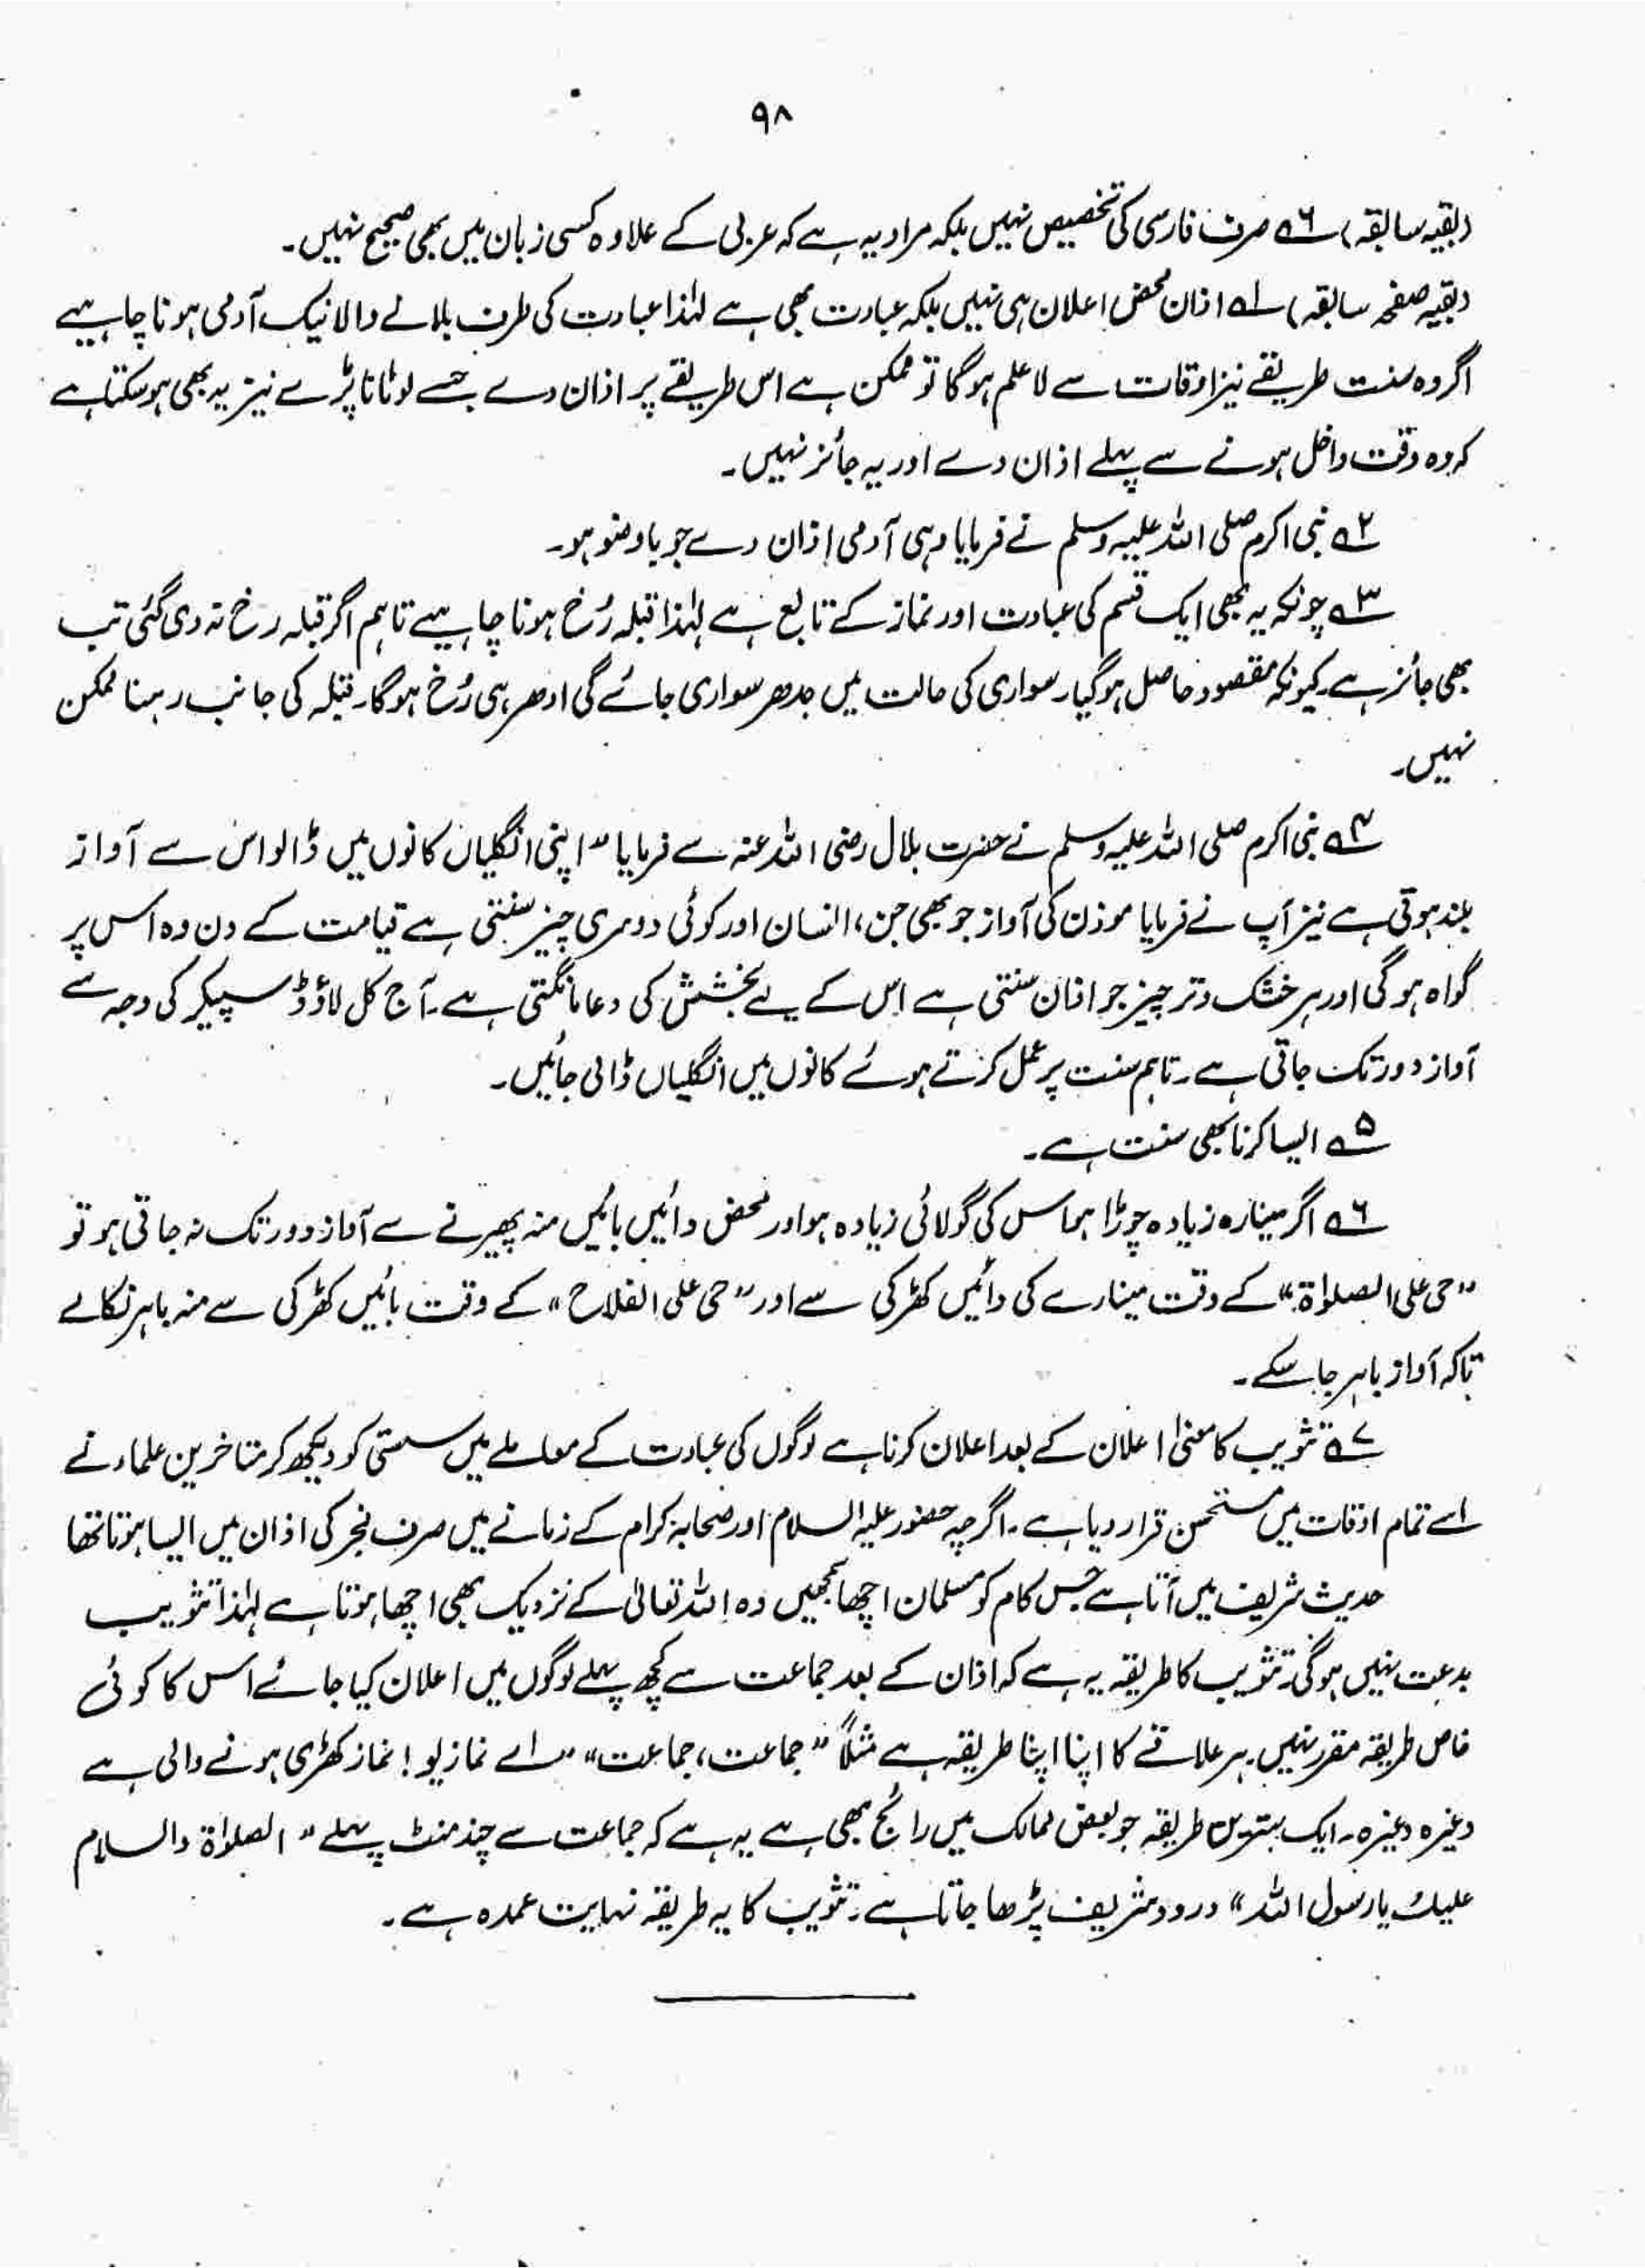 ۹۸
(بقیہ سابقہ) ؂۶ صرف فارسی کی تخصیص نہیں بلکہ مراد یہ ہے کہ عربی کے علاوہ کسی زبان میں بھی صحیح نہیں۔
(بقیہ صفحہ سابقہ) ؂۱ اذان محض اعلان ہی نہیں بلکہ عبادت بھی ہے لہٰذا عبادت کی طرف بلانے والا نیک آدمی ہونا چاہیے
اگر وہ سنت طریقے نیز اوقات سے لاعلم ہوگا تو ممکن ہے اس طریقے پر اذان دے جسے لوٹانا پڑے نیز یہ بھی ہو سکتا ہے
کہ وہ وقت داخل ہونے سے پہلے اذان دے اور یہ جائز نہیں۔
؂۲ نبی اکرم صلی اللہ علیہ وسلم نے فرمایا وہی آدمی اذان دے جو باوضو ہو۔
؂۳ چونکہ یہ بھی ایک قسم کی عبادت اور نماز کے تابع ہے لہٰذا قبلہ رُخ ہونا چاہیے تاہم اگر قبلہ رخ نہ دی گئی تب
بھی جائز ہے۔ کیونکہ مقصود حاصل ہوگیا۔ سواری کی حالت میں جدھر سواری جائے گی ادھر ہی رُخ ہوگا۔ قبلہ کی جانب رہنا ممکن
نہیں۔
؂۴ نبی اکرم صلی اللہ علیہ وسلم نے حضرت بلال رضی اللہ عنہ سے فرمایا "اپنی انگلیاں کانوں میں ڈالو اس سے آواز
بلند ہوتی ہے نیز آپ نے فرمایا موذن کی آواز جو بھی جن، انسان اور کوئی دوسری چیز سنتی ہے قیامت کے دن وہ اس پر
گواہ ہوگی اور ہر خشک وتر چیز جو اذان سنتی ہے اس کے لیے بخشش کی دعا مانگتی ہے۔ آج کل لاؤڈ سپیکر کی وجہ سے
آواز دور تک جاتی ہے۔ تاہم سنت پر عمل کرتے ہوئے کانوں میں انگلیاں ڈالی جائیں۔
؂۵ ایسا کرنا بھی سنت ہے۔
؂۶ اگر مینارہ زیادہ چوڑا ہو اس کی گولائی زیادہ ہو اور محض دائیں بائیں منہ پھیرنے سے آواز دور تک نہ جاتی ہو تو
"حی علی الصلوٰۃ" کے وقت مینارے کی دائیں کھڑکی سے اور "حی علی الفلاح" کے وقت بائیں کھڑکی سے منہ باہر نکالے
تاکہ آواز باہر جا سکے۔
؂۷ تثویب کا معنیٰ اعلان کے بعد اعلان کرنا ہے لوگوں کی عبادت کے معاملے میں سستی کو دیکھ کر متاخرین علماء نے
اسے تمام اوقات میں مستحسن قرار دیا ہے۔ اگرچہ حضور علیہ السلام اور صحابہ کرام کے زمانے میں صرف فجر کی اذان میں ایسا ہوتا تھا
حدیث شریف میں آتا ہے جس کام کو مسلمان اچھا سمجھیں وہ اللہ تعالیٰ کے نزدیک بھی اچھا ہوتا ہے لہٰذا تثویب
بدعت نہیں ہوگی۔ تثویب کا طریقہ یہ ہے کہ اذان کے بعد جماعت سے کچھ پہلے لوگوں میں اعلان کیا جائے اس کا کوئی
خاص طریقہ مقرر نہیں۔ ہر علاقے کا اپنا اپنا طریقہ ہے مثلاً "جماعت، جماعت" "اے نمازیو! نماز کھڑی ہونے والی ہے
وغیرہ وغیرہ۔ ایک بہترین طریقہ جو بعض ممالک میں رائج بھی ہے یہ ہے کہ جماعت سے چند منٹ پہلے "الصلوٰۃ والسلام
علیک یا رسول اللہ" درود شریف پڑھا جاتا ہے۔ تثویب کا یہ طریقہ نہایت عمدہ ہے۔